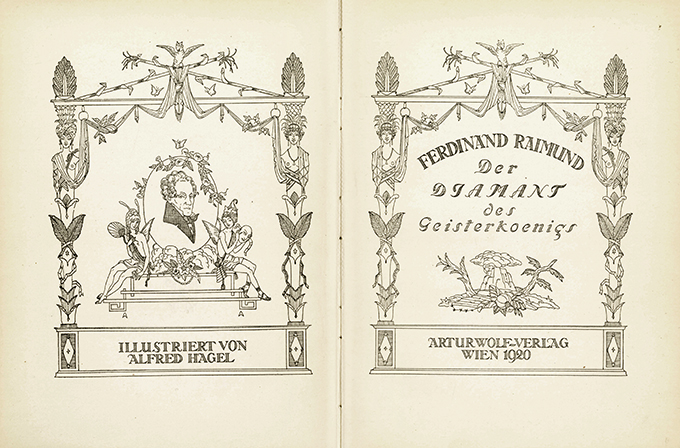 ILLUSTRIERT VON
ALFRED HAGEL
FERDINAND RAIMUND
Der
DIAMANT
des
Geisterkoenigs
ARTUR WOLF-VERLAG
WIEN 1920